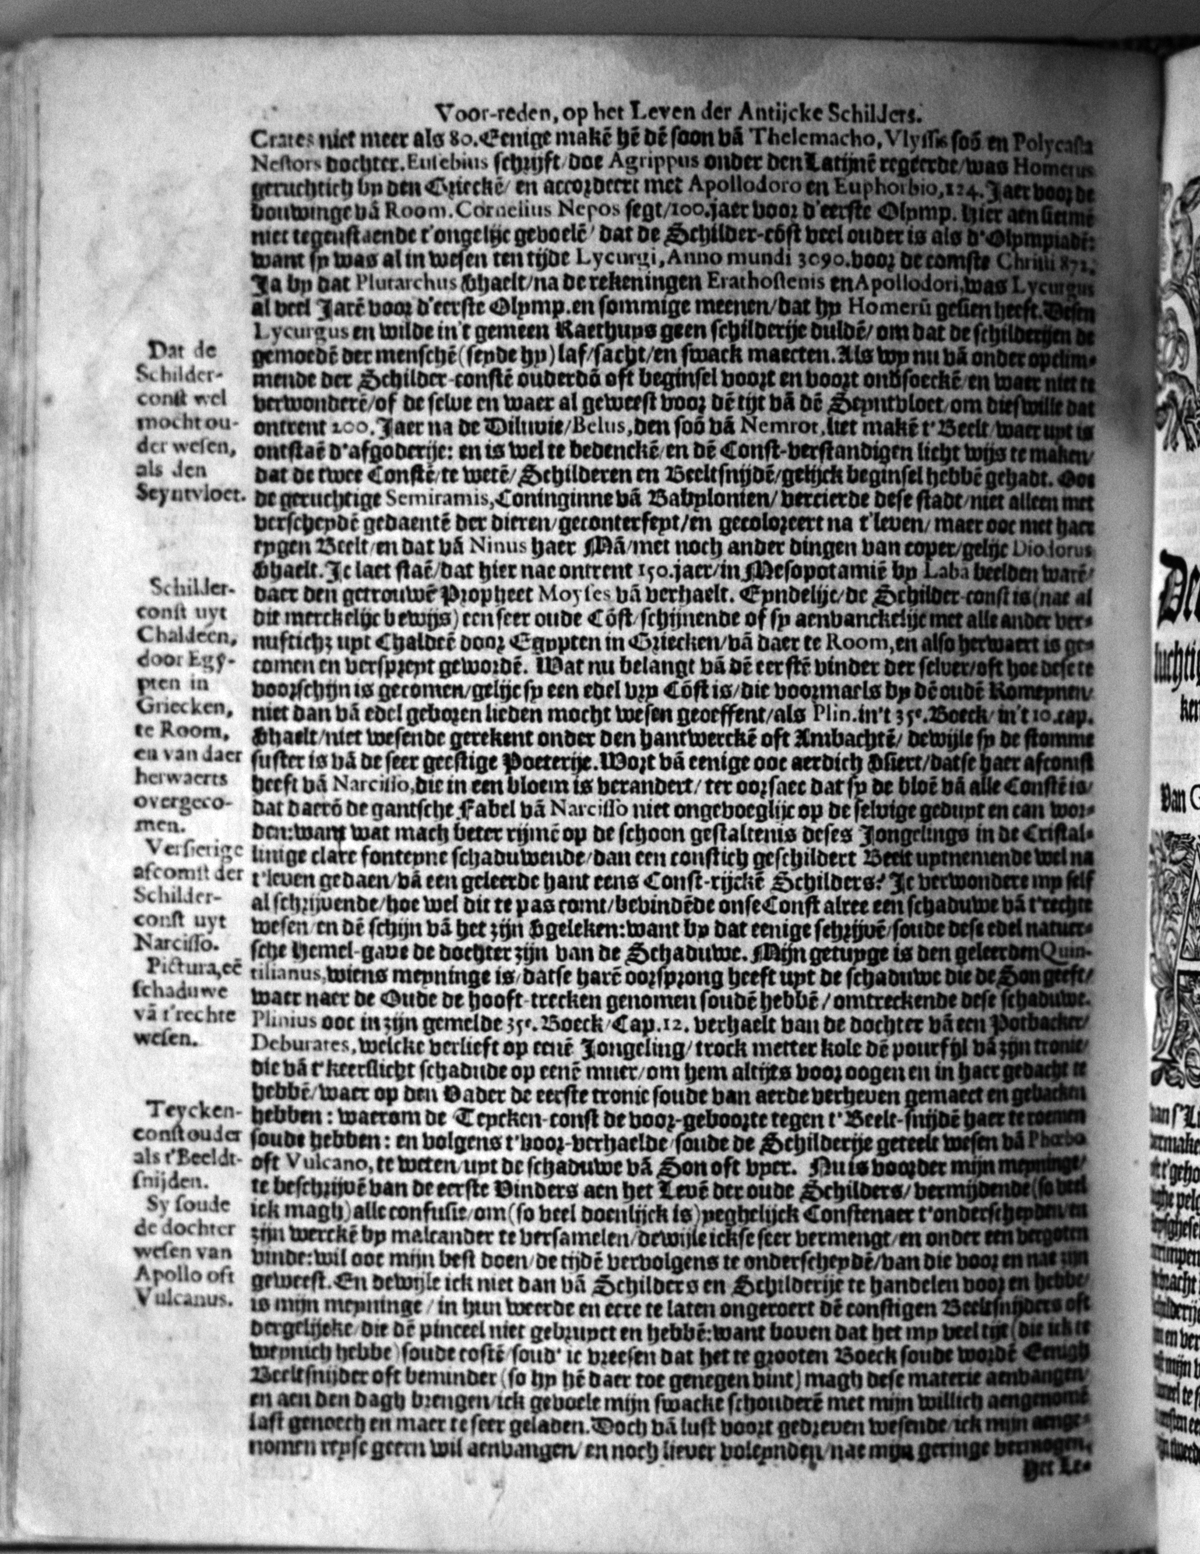 Voor-reden, op het Leven der Antijcke Schilders.
Crates niet meer als 80. Eenige makē hē dē soon vā Thelemacho, Vlyssis soō en Polycasta
Nestors dochter. Eusebius schrijft/doe Agrippus onder den Latijnē regeerde/was Homerus
geruchtich by den Grieckē/ en accordeert met Apollodoro en Euphorbio, 124. Jaer voor de
bouwinge vā Room. Cornelius Nepos segt/100. jaer voor d'eerste Olymp. Hier aen sietmē
niet tegenstaende t'ongelijc gevoelē/ dat de Schilder-cōst veel ouder is als d'Olympiadē:
want sy was al in wesen ten tijde Lycurgi, Anno mundi 3090. voor de comste Christi 872.
Ja by dat Plutarchus v̄haelt/na de rekeningen Erathostenis en Apollodori, was Lycurgus
al veel Jarē voor d'eerste Olymp. en sommige meenen/dat hy Homerū gesien heeft. Desen
Lycurgus en wilde in't gemeen Raethuys geen schilderije duldē/ om dat de schilderijen de
gemoedē der menschē (seyde hy) laf/sacht/en swack maecten. Als wy nu vā onder opclim-
mende der Schilder-constē ouderdō oft beginsel voort en voort ond̄soeckē/ en waer niet te
verwonderē/of de selve en waer al geweest voor dē tijt vā dē Seyntvloet/om dieswille dat
ontrent 200. Jaer na de Diluvie/Belus, den soō vā Nemrot, liet makē t'Beelt/waer uyt is
ontstaē d'afgoderije: en is wel te bedenckē/en dē Const-verstandigen licht wijs te maken/
dat de twee Constē/te wetē/ Schilderen en Beeltsnijdē/gelijck beginsel hebbē gehadt. Ooc
de geruchtige Semiramis, Coninginne vā Babylonien/ vercierde dese stadt/niet alleen met
verscheydē gedaentē der dieren/geconterfeyt/en gecoloreert na t'leven/ maer ooc met haer
eygen Beelt/en dat vā Ninus haer Mā/met noch ander dingen van coper/gelijc Diodorus
v̄haelt. Jc laet staē/dat hier nae ontrent 150. jaer/in Mesopotamiē by Laba beelden warē/
daer den getrouwē Propheet Moyses vā verhaelt. Eyndelijc/de Schilder-const is (nae al
die merckelijc bewijs) een seer oude Cōst/schijnende of sy aenvanckelijc met alle ander ver-
nuftichz uyt Chaldeē door Egypten in Griecken/vā daer te Room, en also herwaert is ge-
comen en verspreyt gewordē. Wat nu belangt vā dē eerstē vinder der selver/oft hoe dese te
voorschijn is gecomen/gelijc sy een edel vry Cōst is/die voormaels by dē oudē Romeynen/
niet dan vā edel geboren lieden mocht wesen geoeffent/als Plin. in't 35e. Boeck/in't 10. cap.
v̄haelt/niet wesende gerekent onder den hantwerckē oft Ambachtē/ dewijle sy de stomme
suster is vā de seer geestige Poeterije. Wort vā eenige ooc aerdich v̄siert/datse haer afcomst
heeft vā Narcisso, die in een bloem is verandert/ ter oorsaec dat sy de bloē vā alle Constē is/
dat daerō de gantsche Fabel vā Narcisso niet ongevoeglijc op de selvige geduyt en can wor-
den: want wat mach beter rijmē op de schoon gestaltenis deses Jongelings in de Cristal-
linige clare fonteyne schaduwende/dan een constich geschildert Beelt uytnemende wel na
t'leven gedaen/vā een geleerde hant eens Const-rijckē Schilders? Jc verwondere my self
al schrijvende/hoe wel dit te pas comt/bevindēde onse Const alree een schaduwe vā t'rechte
wesen/en dē schijn vā het zijn v̄geleken: want by dat eenige schrijvē/soude dese edel natuer-
sche hemel-gave de dochter zijn van de Schaduwe. Mijn getuyge is den geleerden Quin-
tilianus, wiens meyninge is/datse harē oorsprong heeft uyt de schaduwe die de Son geeft/
waer naer de Oude de hooft-trecken genomen soudē hebbē/omtreckende dese schaduwe.
Plinius ooc in zijn gemelde 35e. Boeck/Cap. 12. verhaelt van de dochter vā een Potbacker/
Deburates, welcke verlieft op eenē Jongeling/trock metter kole dē pourfijl vā zijn tronie/
die vā t'keerslicht schadude op eenē muer/om hem altijts voor oogen en in haer gedacht te
hebbē/waer op den Vader de eerste tronie soude van aerde verheven gemaect en gebacken
hebben: waerom de Teycken-const de voor-geboorte tegen t'Beelt-snijdē haer te roemen
soude hebben: en volgens t'voor-verhaelde/soude de Schilderije geteelt wesen vā Phœbo
oft Vulcano, te weten/uyt de schaduwe vā Son oft vyer. Nu is voorder mijn meyninge/
te beschrijvē van de eerste Vinders aen het Levē der oude Schilders/vermijdende (so veel
ick magh) alle confusie/om (so veel doenlijck is) yeghelijck Constenaer t'onderscheyden/en
zijn werckē by malcander te versamelen/dewijle ickse seer vermengt/en onder een vergoten
vinde: wil ooc mijn best doen/de tijdē vervolgens te onderscheydē/van die voor en nae zijn
geweest. En dewijle ick niet dan vā Schilders en Schilderije te handelen voor en hebbe/
is mijn meyninge/ in hun weerde en eere te laten ongeroert dē constigen Beeltsnijders oft
dergelijcke/die dē pinceel niet gebruyct en hebbē: want boven dat het my veel tijt (die ick te
weynich hebbe) soude costē/soud' ic vreesen dat het te grooten Boeck soude wordē. Eenigh
Beeltsnijder oft beminder (so hy hē daer toe genegen vint) magh dese materie aenvangen/
en aen den dagh brengen/ick gevoele mijn swacke schouderē met mijn willich aengenomē
last genoech en maer te seer geladen. Doch vā lust voort gedreven wesende/ick mijn aenge-
nomen reyse geern wil aenvangen/en noch liever voleynden/nae mijn geringe vermogen.
Het Le-
Dat de
Schilder-
const wel
mocht ou-
der wesen,
als den
Seyntvloet.
Schilder-
const uyt
Chaldeen,
door Egy-
pten in
Griecken,
te Room,
en van daer
herwaerts
overgeco-
men.
Versierige
afcomst der
Schilder-
const uyt
Narcisso.
Pictura, eē
schaduwe
vā t'rechte
wesen.
Teycken-
const ouder
als t'Beeldt-
snijden.
Sy soude
de dochter
wesen van
Apollo oft
Vulcanus.